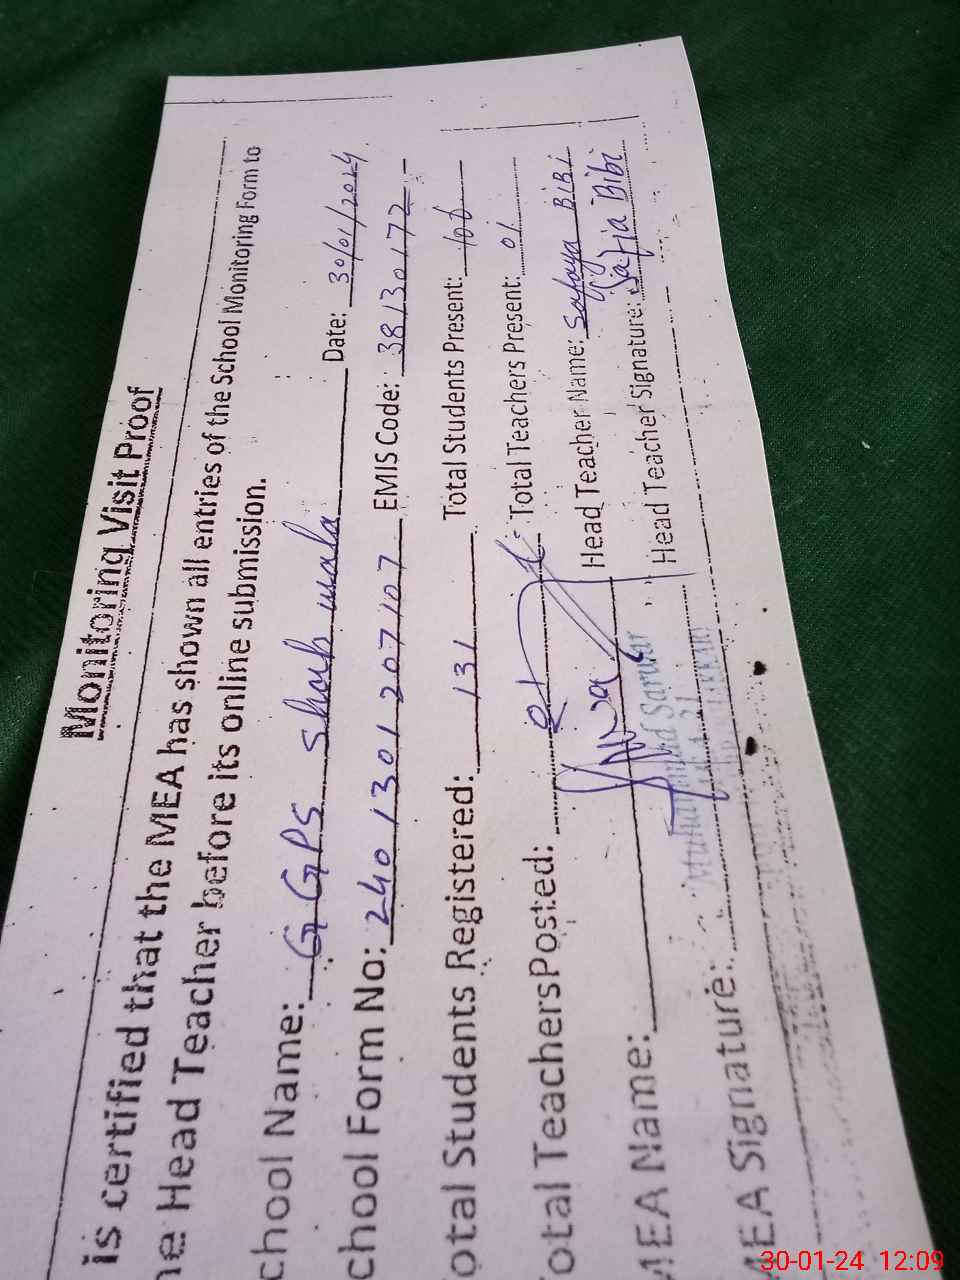 Monitoring Visit Proof
is certified that the MEA has shown all entries of the School Monitoring Form to
he Head Teacher before its online submission.
chool Name: GGPS Date: 30/01/2024
chool Form No: 2401301207107 EMIS Code: 38130172
otal Students Registered: 131 Total Students Present: 106
otal Teachers Posted: 01 Total Teachers Present: 01
MEA Name: Head Teacher Name: Safaya BiBi
MEA Signature: Head Teacher Signature: Safia Bibi
Muhammad Sarwar
30-01-24 12:09